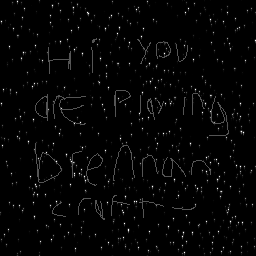 Hi you
are Playing
Brennan
craft